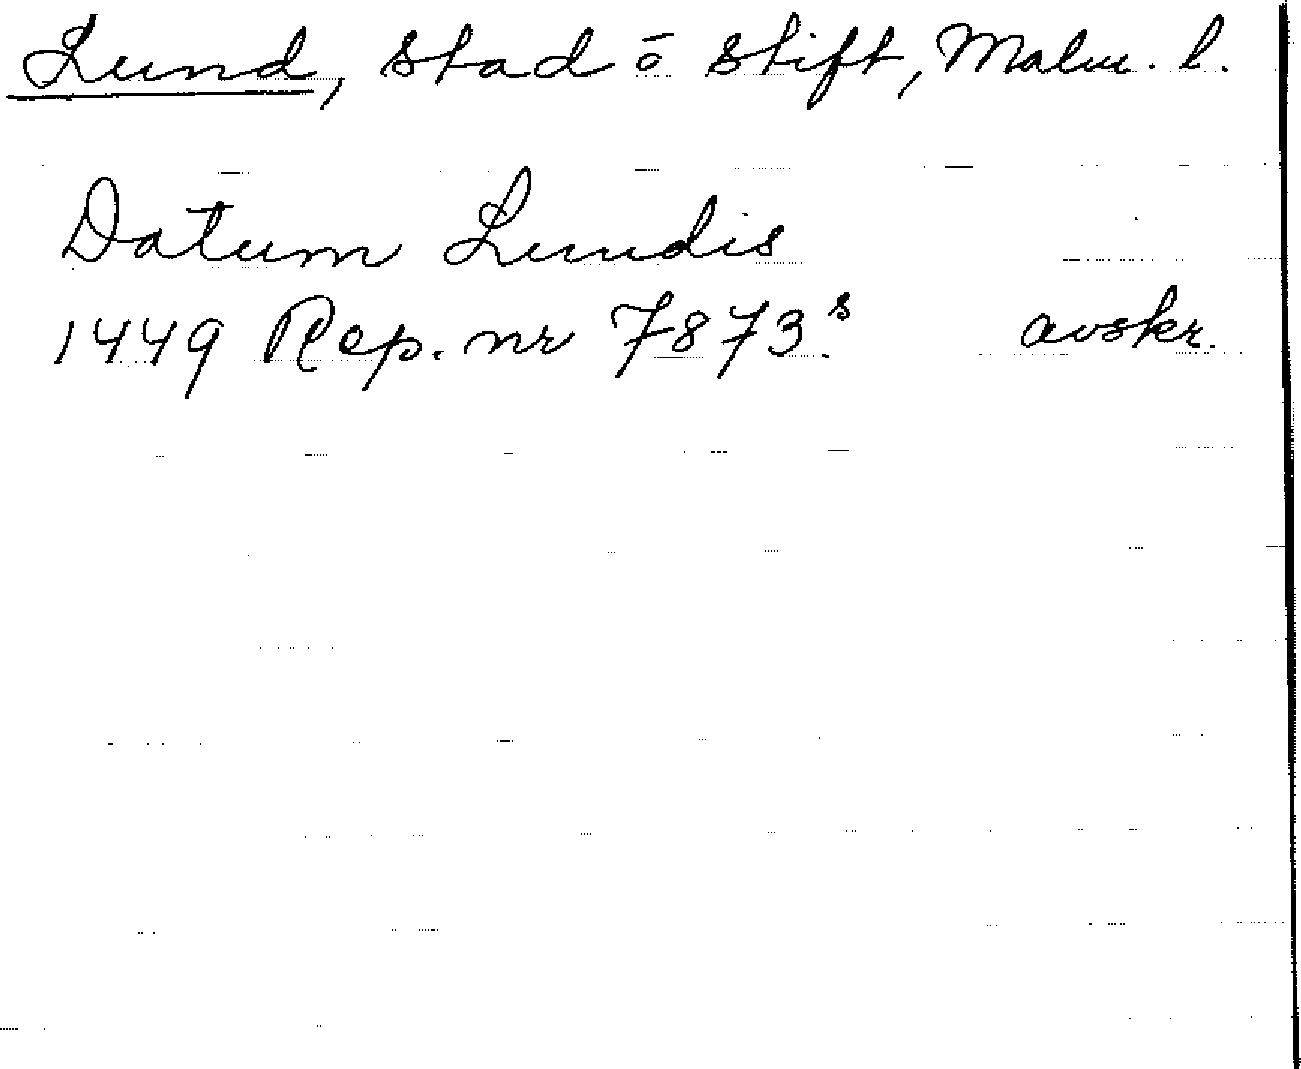 Lund, stad o stift, Malm. l.
Datum Lundis
1449 Rep. nr 7873.s avskr.